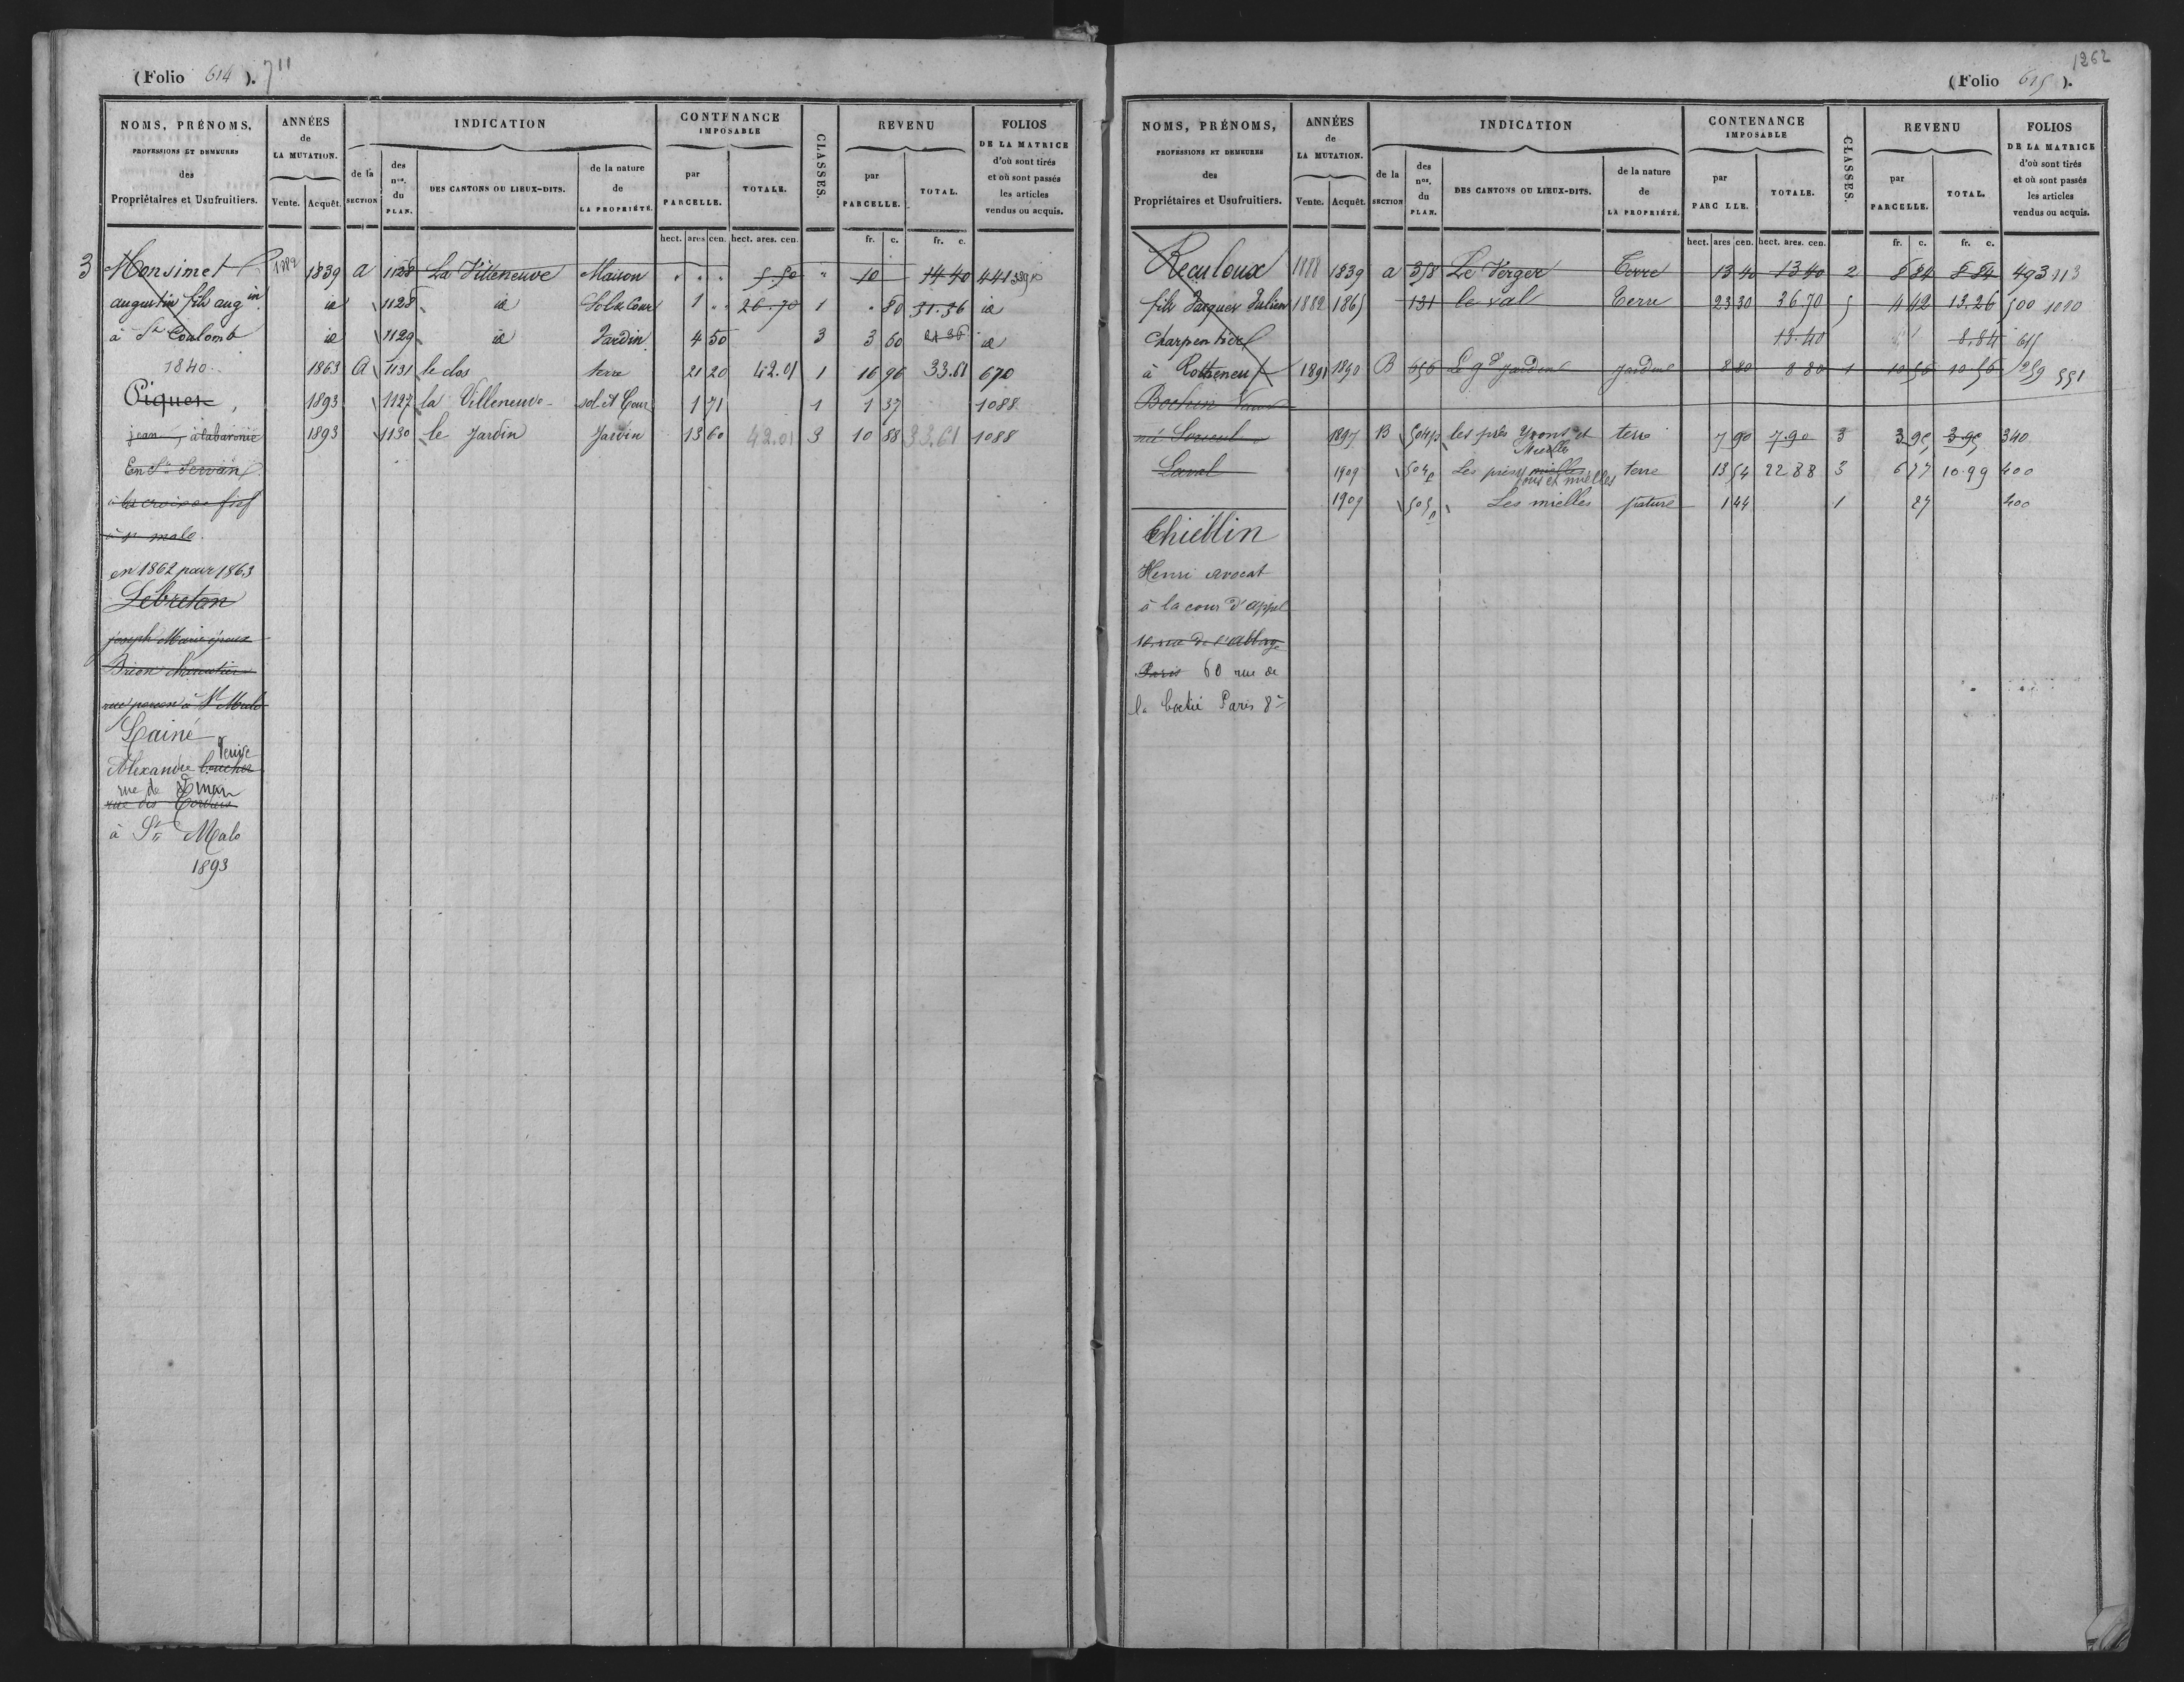 (Folio 614). 711
NOMS, PRÉNOMS, PROFESSIONS ET DEMEURES des Propriétaires et Usufruitiers.
ANNÉES de LA MUTATION. Vente. Acquêt.
INDICATION de la SECTION des nos. du PLAN. DES CANTONS OU LIEUX-DITS. de la nature de LA PROPRIÉTÉ.
CONTENANCE IMPOSABLE par PARCELLE. TOTALE.
CLASSES.
REVENU par PARCELLE. TOTAL.
FOLIOS DE LA MATRICE d'où sont tirés et où sont passés les articles vendus ou acquis.
hect. ares cen. hect. ares. cen. fr. c. fr. c.
3 Monsimet 1882 1839 a 1128 La Villeneuve Maison " " " 5.50 " 10 14 40 441
augustin fils aug.in id 1128 id Sol & Cour 1 " " 26.70 1 " 80 31.36 id
à St Coulomb id 1129 id Jardin 4 50 3 3 60 id
1840. 1863 A 1131 le clos terre 21 20 42.01 1 16 96 33.61 670
Piquer, 1893 1127 la Villeneuve sol et Cour 1 71 1 1 37 1088
jean, à la baronie 1893 1130 le Jardin Jardin 13 60 42.01 3 10 88 33.61 1088
En St Servan
à la croix au fief
à st malo.
en 1862 pour 1863
Lebretan
joseph Marie époux
Brion
à St Malo
Lainé
Veuve
Alexandre boucher
rue de Dinan
rue des Cordiers
à St Malo
1893
1262
(Folio 615).
NOMS, PRÉNOMS, PROFESSIONS ET DEMEURES des Propriétaires et Usufruitiers.
ANNÉES de LA MUTATION. Vente. Acquêt.
INDICATION de la SECTION des nos. du PLAN. DES CANTONS OU LIEUX-DITS. de la nature de LA PROPRIÉTÉ.
CONTENANCE IMPOSABLE par PARC LLE. TOTALE.
CLASSES.
REVENU par PARCELLE. TOTAL.
FOLIOS DE LA MATRICE d'où sont tirés et où sont passés les articles vendus ou acquis.
hect. ares cen. hect. ares. cen. fr. c. fr. c.
Reculoux 1888 1839 a 358 Le Verger Terre 13 40 13 40 2 8 84 8 84 493 113
fils Jacques Julien 1882 1865 131 le val Terre 23 30 36.70 5 4 42 13.26 500 1020
Charpentier 13.40 8.84 615
à Rotheneuf 1891 1890 B 656 Le gd Jardin Jardin 8 80 8 80 1 10 56 10 56 259 551
Bochin
né 1897 B 504p les prés Yvons et Mielle terre 7 90 7.90 3 3 95 3.95 340
Laval 1909 504p Les prés yvons et mielles terre 13 54 22 88 3 6 77 10.99 400
1909 505p Les mielles pature 1 44 1 27 400
Thiéblin
Henri avocat
à la cour d'appel
16 rue de l'abbaye
Paris 60 rue de
la boétie Paris 8e